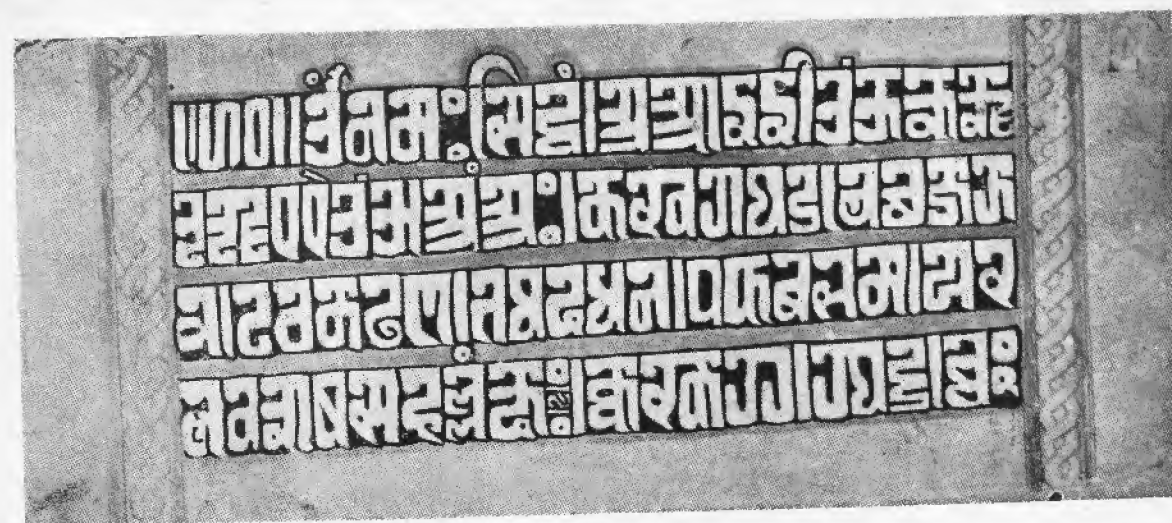 ॥०॥ ॐ नमः सिद्धं। अ आ इ ई उ ऊ ऋ ॠ
ऌ ॡ ए ऐ ओ औ अं अः। क ख ग घ ङ। च छ ज झ
ञ। ट ठ ड ढ ण। त थ द ध न। प फ ब भ म। य र
ल व श ष स ह लं क्षः।